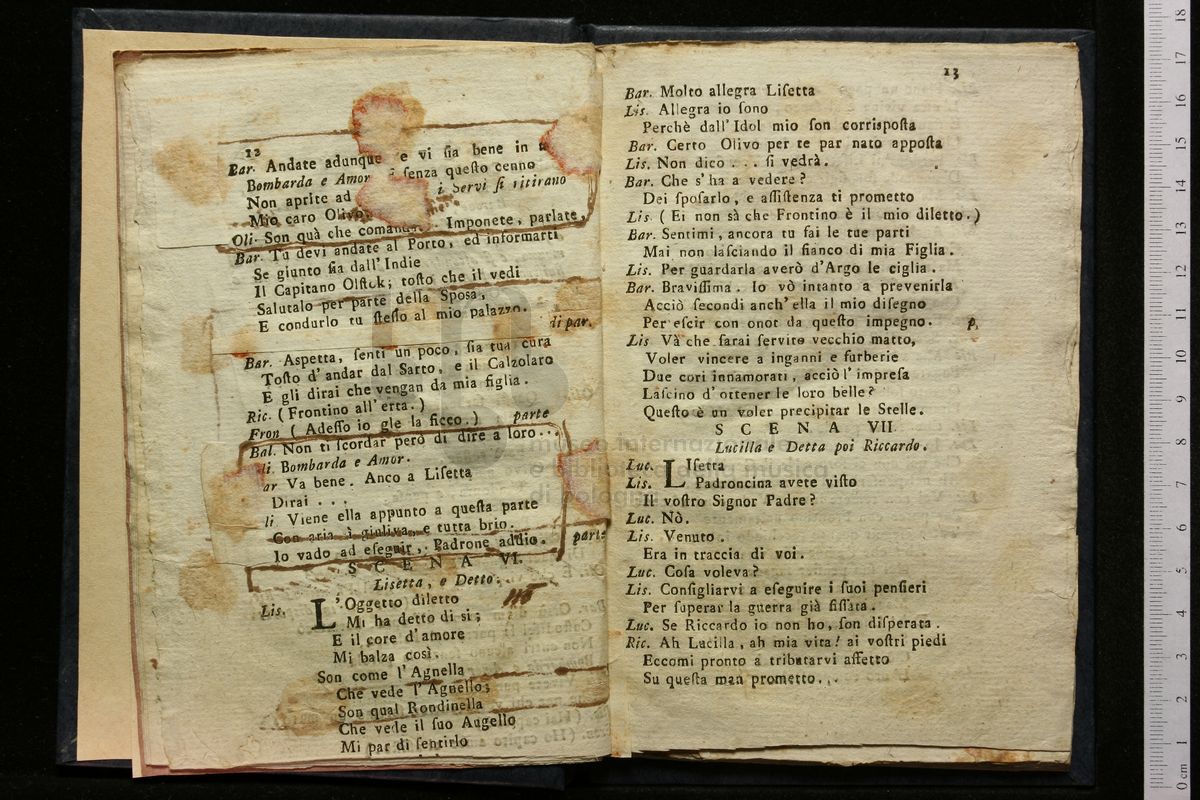 12
Bar. Andate adunque e vi ſia bene in
Bombarda e Amor ſenza queſto cenno
Non aprite ad i Servi ſi ritirano
Mio caro Olivo
Oli. Son quà che Imponete, parlate,
Bar. Tu devi andate al Porto, ed informarti
Se giunto ſia dall'Indie
Il Capitano Olſtok; toſto che il vedi
Salutalo per parte della Spoſa,
E condurlo tu ſteſſo al mio palazzo.
di par.
Bar. Aſpetta, ſenti un poco, ſia tua cura
Toſto d'andar dal Sarto, e il Calzolaro
E gli dirai che vengan da mia figlia.
Ric. (Frontino all'erta.)
Fron ( Adeſſo io gle la ficco.) parte
Bal. Non ti ſcordar però di dire a loro...
li. Bombarda e Amor.
ar Va bene. Anco a Liſetta
Dirai ...
li. Viene ella appunto a queſta parte
Con aria sì giuliva, e tutta brio.
Io vado ad eſeguir, Padrone addio. parte
SCENA VI.
Lisetta, e Detto.
Lis. L'Oggetto diletto
Mi ha detto di si;
E il core d'amore
Mi balza così.
Son come l'Agnella
Che vede l'Agnello;
Son qual Rondinella
Che vede il ſuo Augello
Mi par di ſentirlo
13
Bar. Molto allegra Liſetta
Lis. Allegra io ſono
Perchè dall'Idol mio ſon corriſpoſta
Bar. Certo Olivo per te par nato appoſta
Lis. Non dico ... ſi vedrà.
Bar. Che s'ha a vedere?
Dei ſpoſarlo, e aſſiſtenza ti prometto
Lis. (Ei non sà che Frontino è il mio diletto.)
Bar. Sentimi, ancora tu fai le tue parti
Mai non laſciando il fianco di mia Figlia.
Lis. Per guardarla averò d'Argo le ciglia.
Bar. Braviſſima. Io vò intanto a prevenirla
Acciò ſecondi anch'ella il mio diſegno
Per eſcir con onor da queſto impegno. p.
Lis Và che ſarai ſervito vecchio matto,
Voler vincere a inganni e furberie
Due cori innamorati, acciò l'impreſa
Laſcino d'ottener le loro belle?
Queſto è un voler precipitar le Stelle.
SCENA VII.
Lucilla e Detta poi Riccardo.
Luc. LIſetta
Lis. Padroncina avete viſto
Il voſtro Signor Padre?
Luc. Nò.
Lis. Venuto.
Era in traccia di voi.
Luc. Coſa voleva?
Lis. Conſigliarvi a eſeguire i ſuoi penſieri
Per ſuperar la guerra già fiſſata.
Luc. Se Riccardo io non ho, ſon diſperata.
Ric. Ah Lucilla, ah mia vita! ai voſtri piedi
Eccomi pronto a tributarvi affetto
Su queſta man prometto...
museo internazionale
e biblioteca della musica
di bologna
0 cm 1 2 3 4 5 6 7 8 9 10 11 12 13 14 15 16 17 18